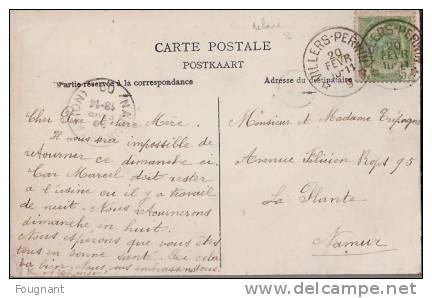 CARTE POSTALE
POSTKAART
Partie réservée à la correspondance
Adresse du destinataire
VILLERS-PERWIN
20
FÉVR
10-11
VILLERS-PERWIN
20
FÉVR
10-11
Cher Père et chère Mère.
Il nous sera impossible de
retourner ce dimanche ci.
Car Marcel doit rester
a l'usine ou il y a travail
de nuit. Nous retournerons
dimanche en huit.
Nous espérons que vous êtes
tous en bonne santé. Ici cela
va bien. Nous vous embrassons tous.
Monsieur et Madame
Avenue Félicien Rops 95
La Plante
Namur
© Fougnant
delcampe.net